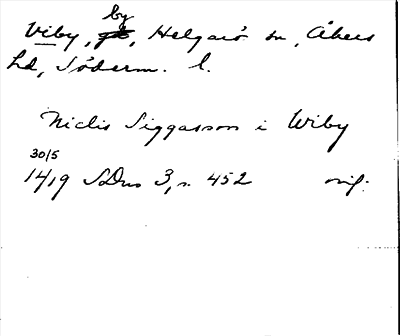 Viby, by, Helgarö sn, Åkers
hd, Söderm. l.
Niclis Siggasson i Wiby
30/5
1419 SDns 3, s. 452 orig.